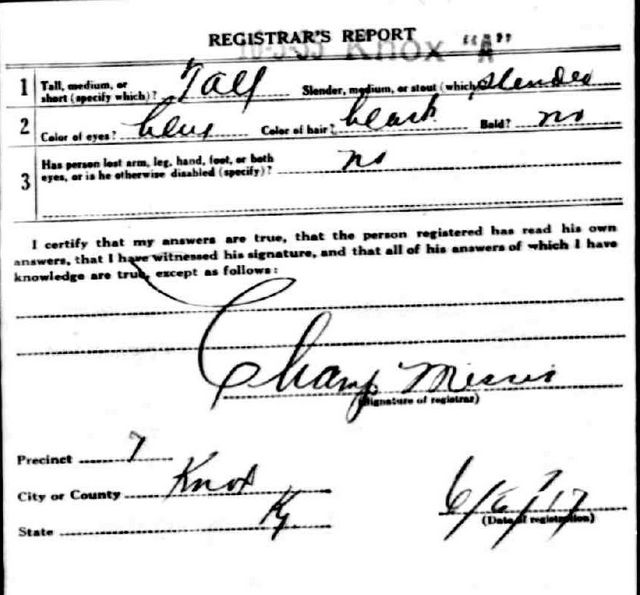 REGISTRAR'S REPORT
Knox "A"
1 Tall, medium, or short (specify which)? Tall Slender, medium, or stout (which)? slender
2 Color of eyes? blue Color of hair? black Bald? no
3 Has person lost arm, leg, hand, foot, or both eyes, or is he otherwise disabled (specify)? no
I certify that my answers are true, that the person registered has read his own
answers, that I have witnessed his signature, and that all of his answers of which I have
knowledge are true, except as follows:
Champ
(Signature of registrar)
Precinct 7
City or County Knox
State Ky.
6/6/17
(Date of registration)